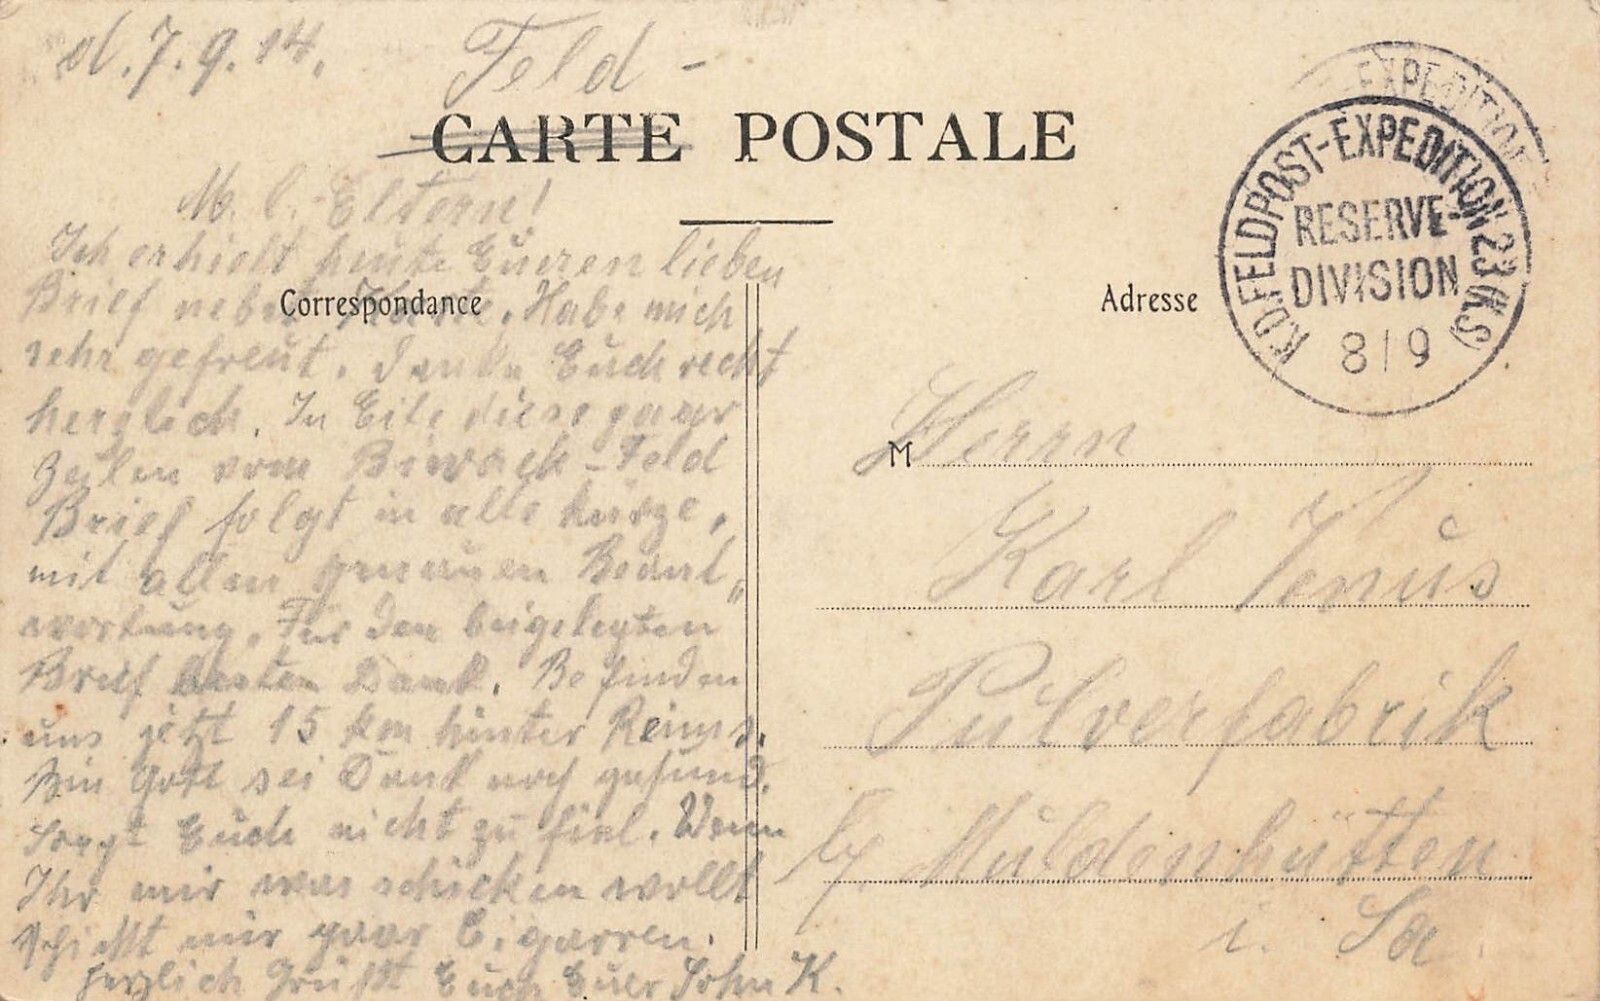 d. 7.9.14. Feld-
CARTE POSTALE
K.D.FELDPOST-EXPEDITION 23 (K.S)
RESERVE-
DIVISION
8/9
EXPEDITION
M. l. Eltern!
Ich erhielt heute Eueren lieben
Brief nebst Karte. Habe mich
sehr gefreut. Danke Euch recht
herzlich. In Eile diese paar
Zeilen vom Biwack-Feld
Brief folgt in alle kürze,
mit allen genauen Beant„
wortung. Für den beigelegten
Brief besten Dank. Befinden
uns jetzt 15 km hinter Reims.
Bin Gott sei Dank noch gesund.
Sorgt Euch nicht zu fiel. Wenn
Ihr mir was schicken wollt
schickt mir paar Cigarren.
Herzlich Grüßt Euch Euer Sohn K.
Correspondance
Adresse
M Herrn
Karl Venus
Pulverfabrik
b/ Muldenhütten
i. Sa.